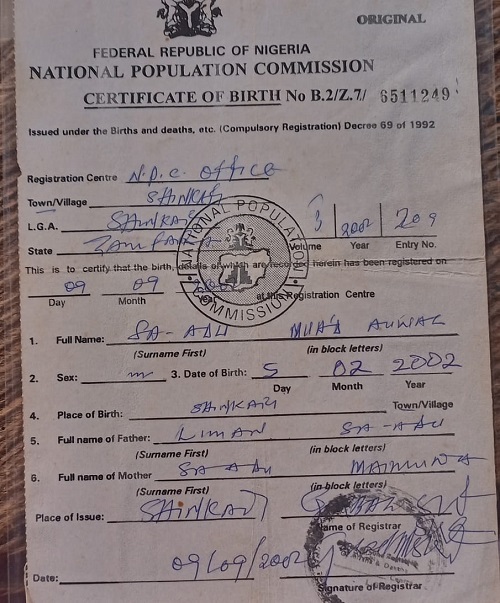 ORIGINAL
FEDERAL REPUBLIC OF NIGERIA
NATIONAL POPULATION COMMISSION
CERTIFICATE OF BIRTH No B.2/Z.7/ 6511249
Issued under the Births and deaths, etc. (Compulsory Registration) Decree 69 of 1992
Registration Centre N.P.C. office
Town/Village SHINKAFI
L.G.A. SHINKAFI 3 2002 209
State ZAMFARA Volume Year Entry No.
NATIONAL POPULATION COMMISSION
This is to certify that the birth, details of which are recorded herein has been registered on
09 09 at this Registration Centre
Day Month
1. Full Name: SA-ADU AUWAL
(Surname First) (in block letters)
2. Sex: m 3. Date of Birth: 5 02 2002
Day Month Year
4. Place of Birth: SHINKAFI Town/Village
5. Full name of Father: LIMAN SA-ADU
(Surname First) (in block letters)
6. Full name of Mother SA-ADU MAIMUNA
(Surname First) (in block letters)
Place of Issue: SHINKAFI
Name of Registrar
Date: 09/09/2002
Signature of Registrar